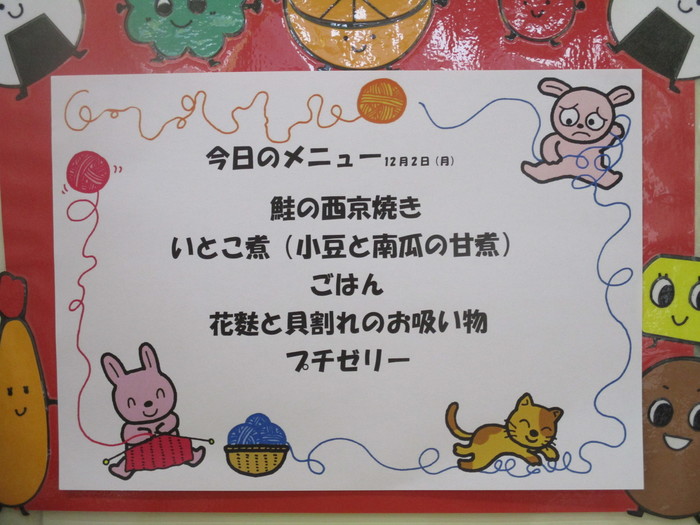 今日のメニュー12月2日（月）
鮭の西京焼き
いとこ煮（小豆と南瓜の甘煮）
ごはん
花麩と貝割れのお吸い物
プチゼリー